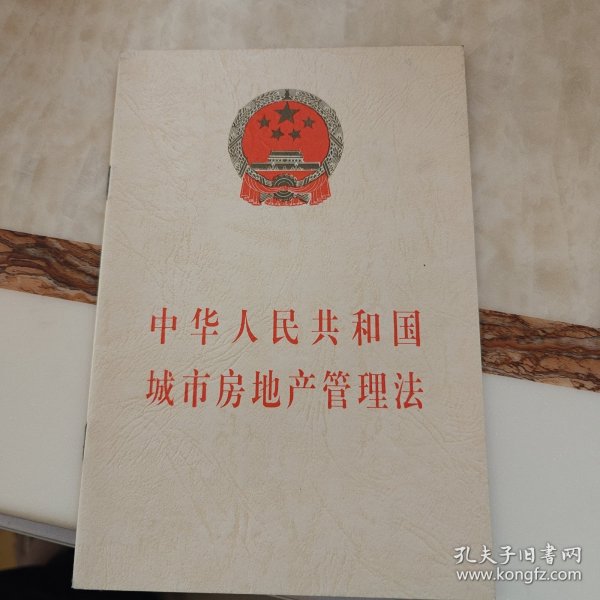 中华人民共和国
城市房地产管理法
孔夫子旧书网
www.kongfz.com